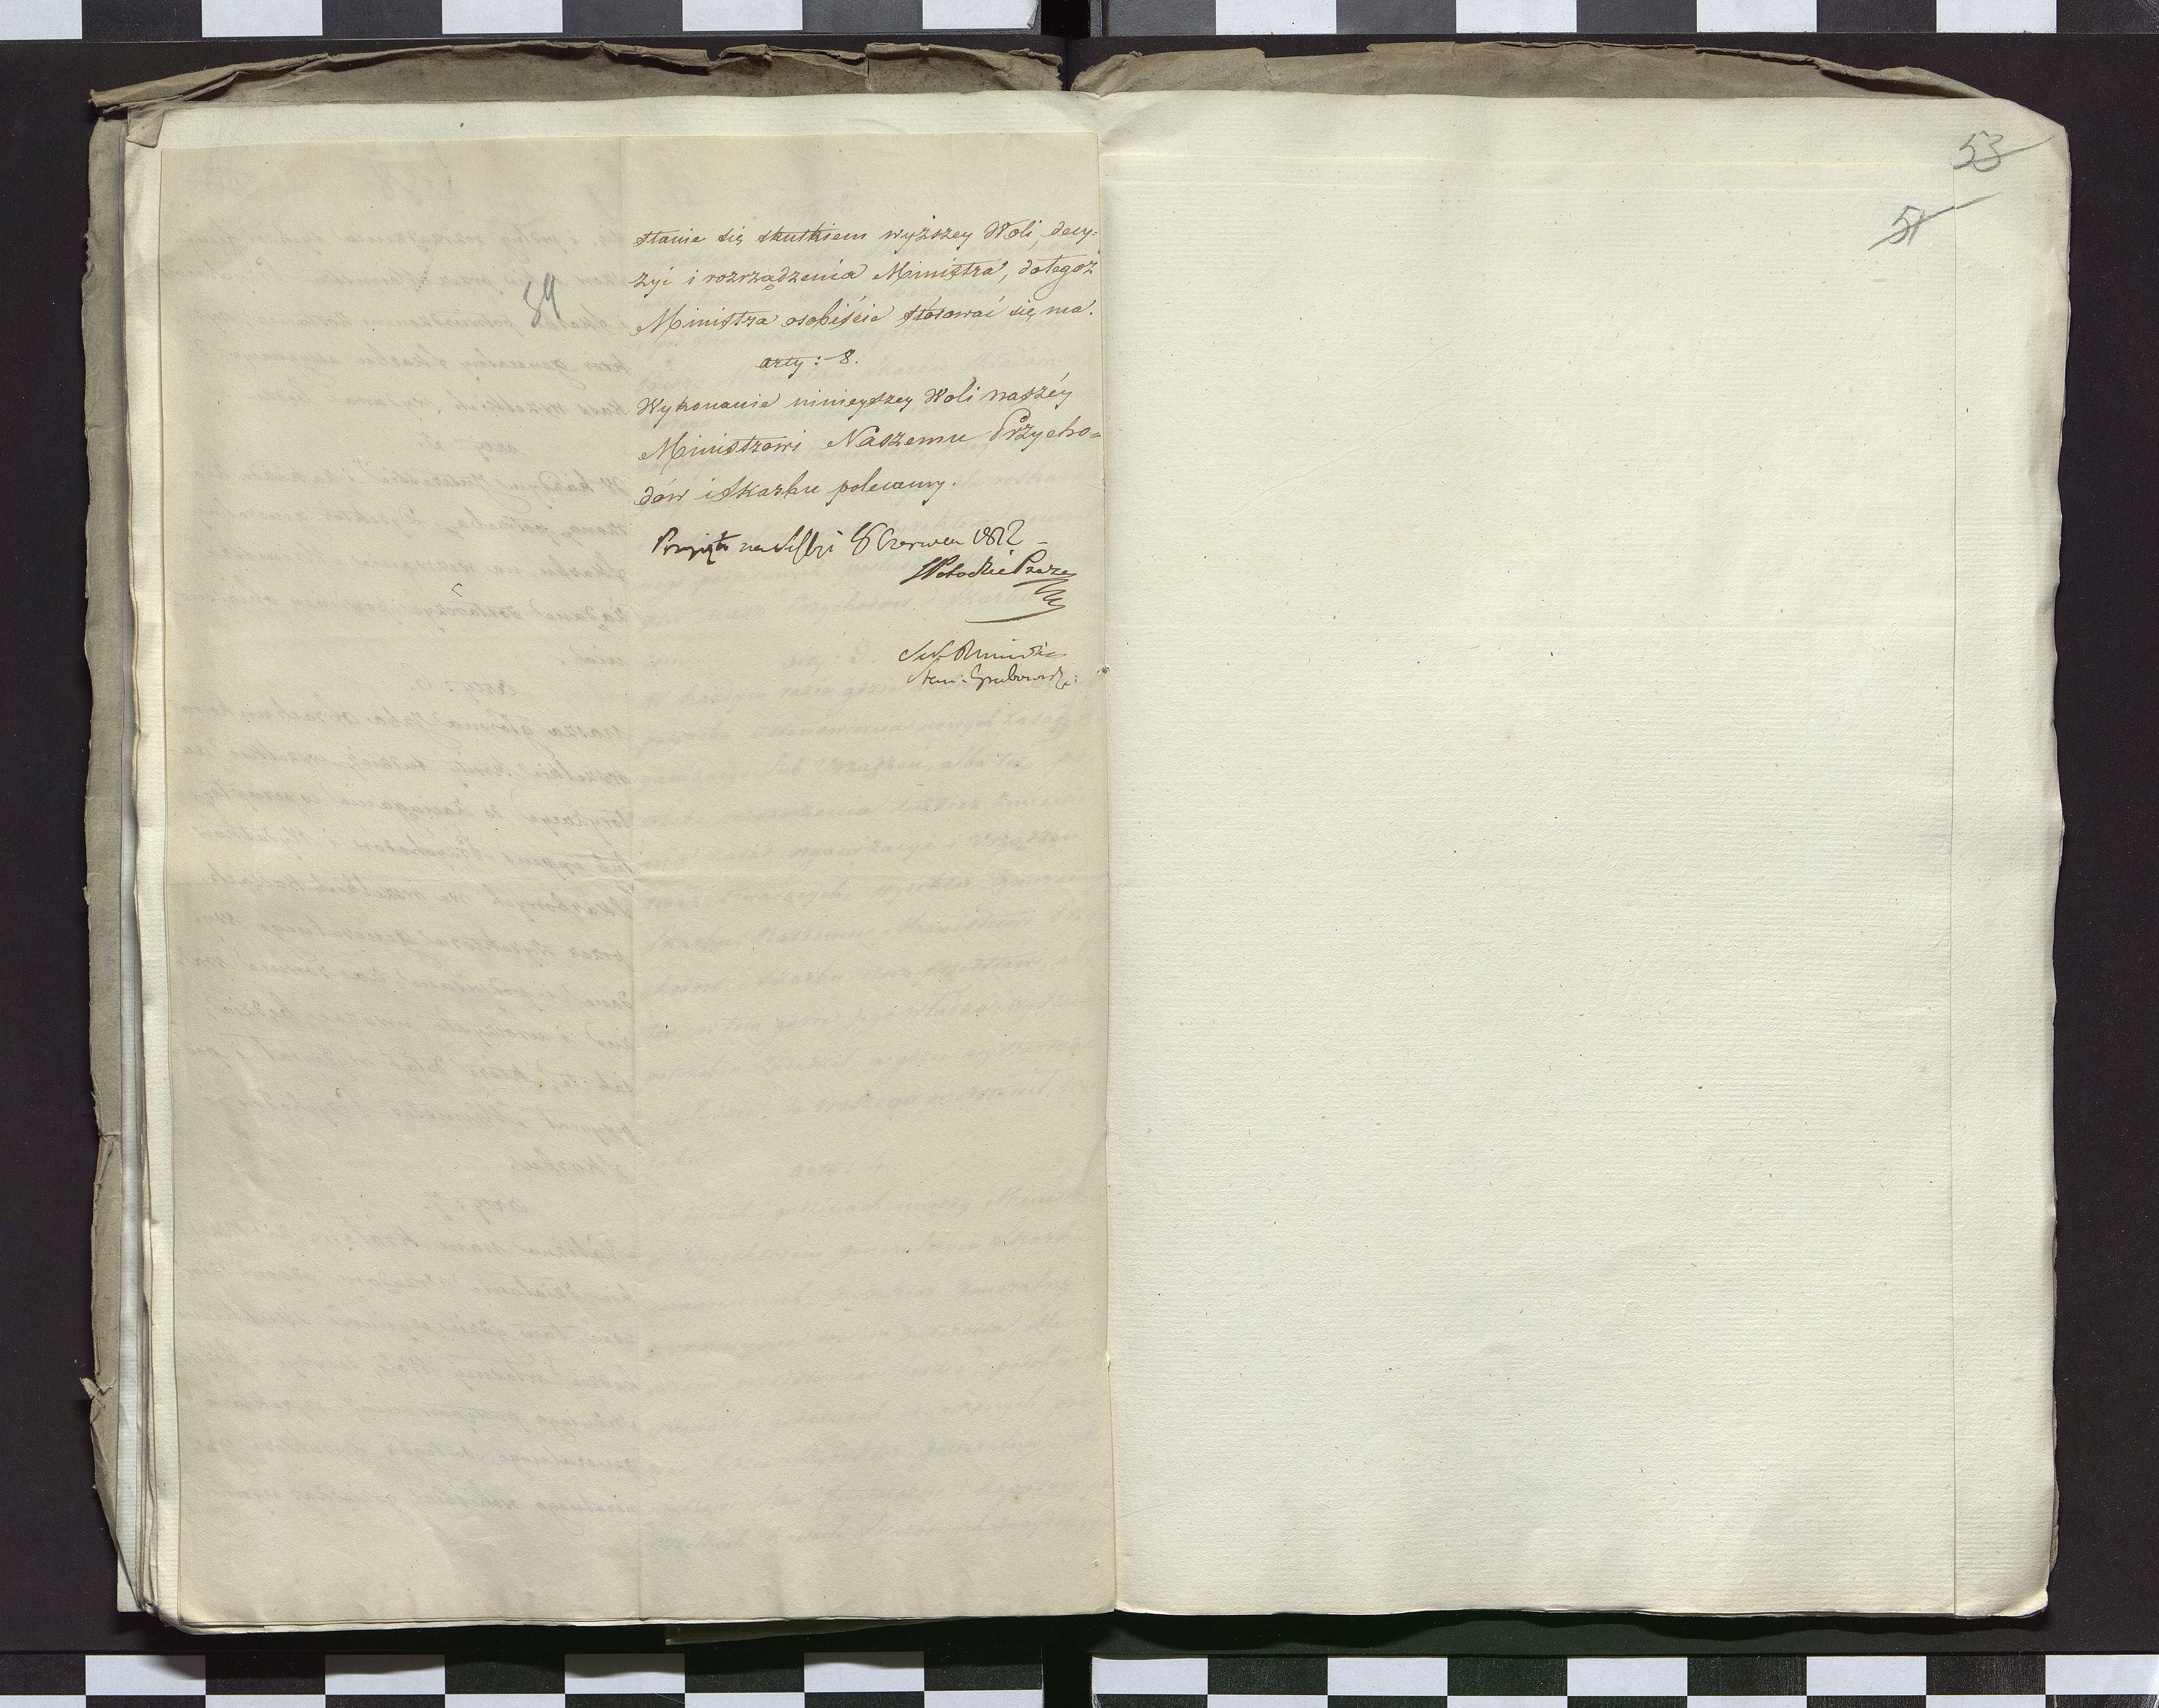 stanie się skutkiem wyższey Woli, decy=
zyi i rozrządzenia Ministra, do tegoż
Ministra osobiście stósować się ma.
arty: 8.
Wykonanie ninieyszey Woli naszéy
Ministrowi Naszemu Przycho=
dów i Skarbu polecamy.
Przyięto na Sessyi 6 Czerwca 1812
S Potocki Preze
Stan: Grabowski
89
53
51